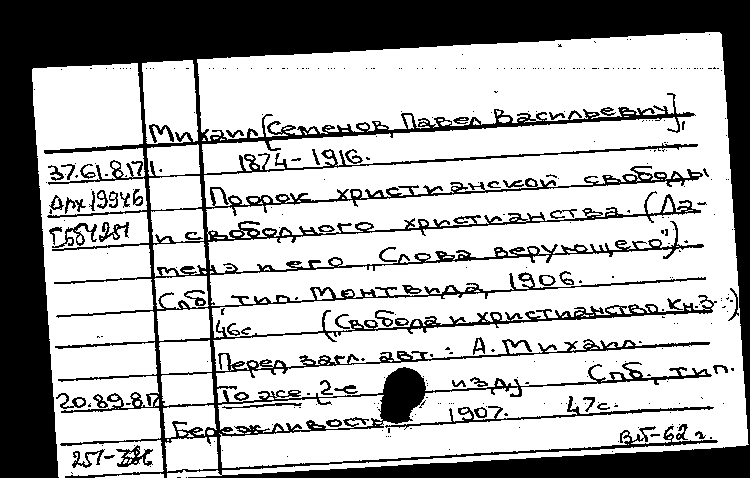 Михаил [Семенов, Павел Васильевич],
37.61.8.171. 1874-1916.
Арх 19946 Пророк христианской свободы
и свободного христианства. (Ла-
тенэ и его „Слова верующего").
Спб., тип. Монтвида, 1906.
46с. („Свобода и христианство. Кн.3")
Перед загл. авт.: А. Михаил.
20.89.8.17 То же. [2-е изд]. Спб., тип.
„Бережливость", 1907. 47с.
251- ВП-62 г.